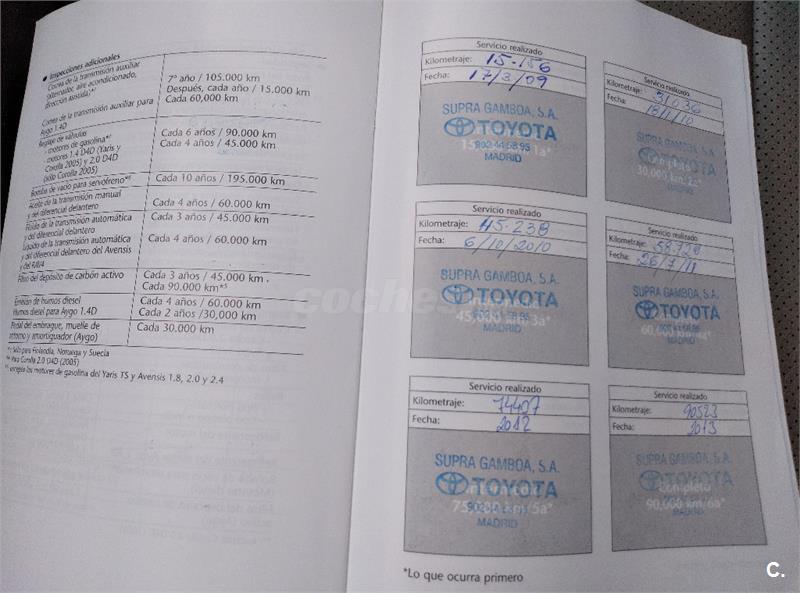 • Inspecciones adicionales
Correa de la transmisión auxiliar
(alternador, aire acondicionado,
dirección asistida)*¹
7º año / 105.000 km
Después, cada año / 15.000 km
Correa de la transmisión auxiliar para
Aygo 1.4D
Cada 60,000 km
Reglaje de válvulas
- motores de gasolina*³
- motores 1.4 D4D (Yaris y
Corolla 2005) y 2.0 D4D
(sólo Corolla 2005)
Cada 6 años / 90.000 km
Cada 4 años / 45.000 km
Bomba de vacío para servofreno
Cada 10 años / 195.000 km
Aceite de la transmisión manual
y del diferencial delantero
Cada 4 años / 60.000 km
Fluido de la transmisión automática
y del diferencial delantero
Cada 3 años / 45.000 km
Líquido de la transmisión automática
y del diferencial delantero del Avensis
y del RAV4
Cada 4 años / 60.000 km
Filtro del depósito de carbón activo
Cada 3 años / 45.000 km
Cada 90.000 km
Emisión de humos diesel
Cada 4 años / 60.000 km
Humos diesel para Aygo 1.4D
Cada 2 años /30,000 km
Pedal del embrague, muelle de
retorno y amortiguador (Aygo)
Cada 30.000 km
Sólo para Finlandia, Noruega y Suecia
Para Corolla 2.0 D4D (2005)
excepto los motores de gasolina del Yaris TS y Avensis 1.8, 2.0 y 2.4
coches
Servicio realizado
Kilometraje: 15.156
Fecha: 17/3/09
SUPRA GAMBOA, S.A.
TOYOTA
902 44 58 95
MADRID
Servicio realizado
Kilometraje: 31036
Fecha: 18/1/10
SUPRA GAMBOA, S.A.
TOYOTA
30,000 km/2a*
MADRID
Servicio realizado
Kilometraje: 45.238
Fecha: 6/10/2010
SUPRA GAMBOA, S.A.
TOYOTA
45,000 km/3a*
MADRID
Servicio realizado
Kilometraje: 58728
Fecha: 26/7/11
SUPRA GAMBOA, S.A.
TOYOTA
60,000 km/4a*
MADRID
Servicio realizado
Kilometraje: 74407
Fecha: 2012
SUPRA GAMBOA, S.A.
TOYOTA
75,000 km/5a*
MADRID
Servicio realizado
Kilometraje: 90523
Fecha: 2013
SUPRA GAMBOA, S.A.
TOYOTA
Completa
90,000 km/6a*
MADRID
*Lo que ocurra primero
C.